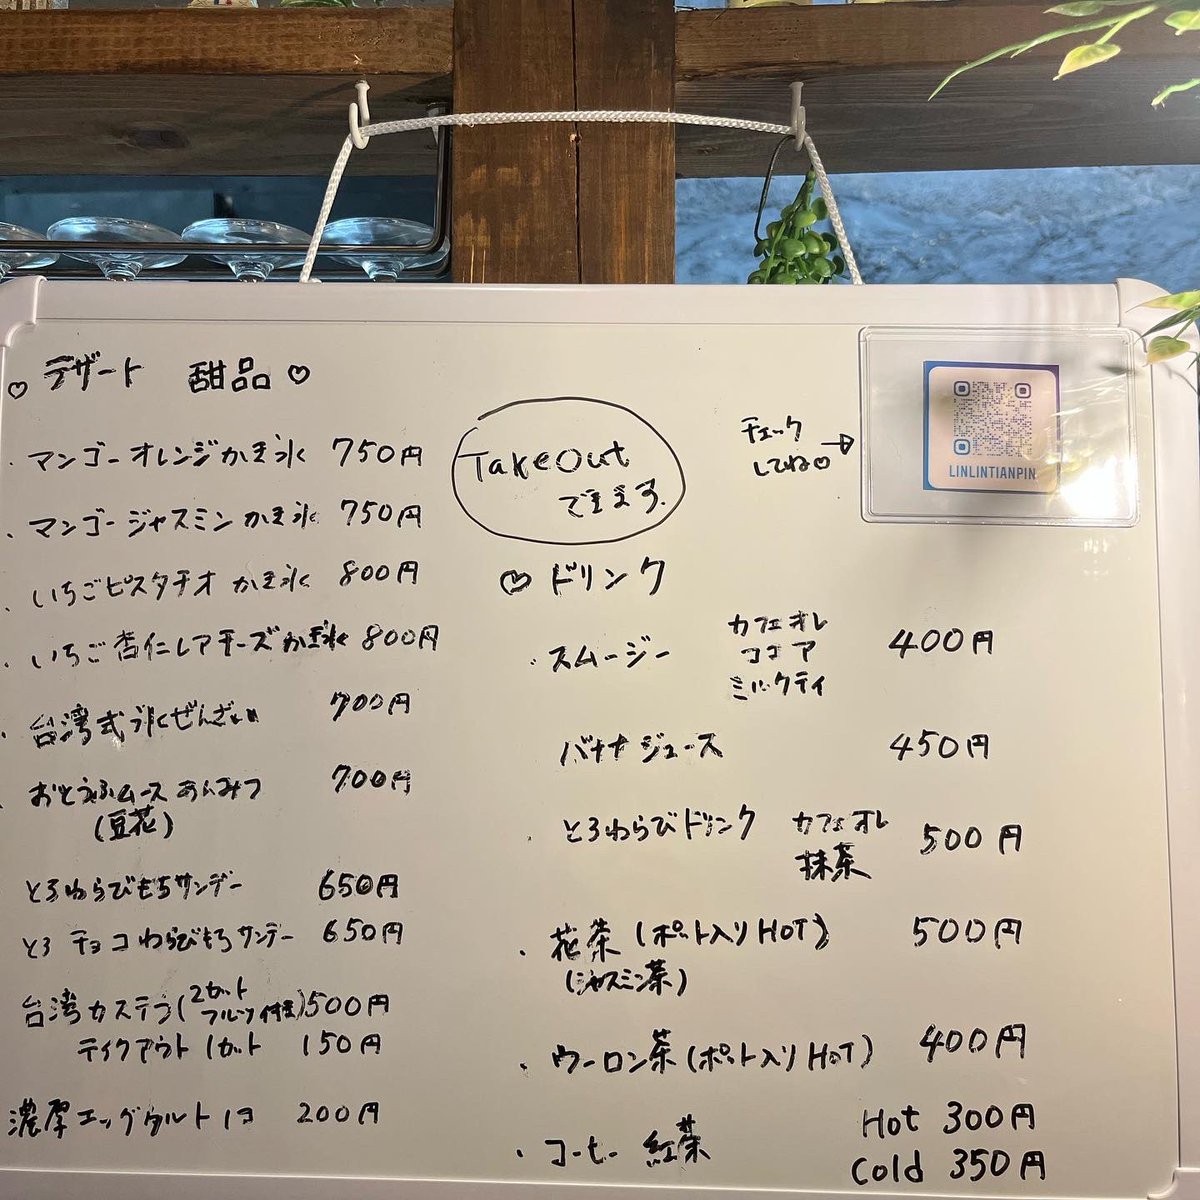 ♡ デザート 甜品 ♡
・マンゴーオレンジかき氷 750円
・マンゴージャスミンかき氷 750円
・いちごピスタチオかき氷 800円
・いちご杏仁レアチーズかき氷 800円
・台湾式氷ぜんざい 700円
・おとうふムースあんみつ 700円
(豆花)
とろわらびもちサンデー 650円
とろチョコわらびもちサンデー 650円
台湾カステラ(2カット フルーツ付き)500円
テイクアウト1カット 150円
濃厚エッグタルト1コ 200円
Takeout
できます。
チェック
してね♡→
LINLINTIANPIN
♡ ドリンク
・スムージー カフェオレ ココア ミルクティ 400円
バナナジュース 450円
・とろわらびドリンク カフェオレ 抹茶 500円
・花茶(ポット入りHOT) 500円
(ジャスミン茶)
・ウーロン茶(ポット入りHOT) 400円
・コーヒー 紅茶 Hot 300円
Cold 350円